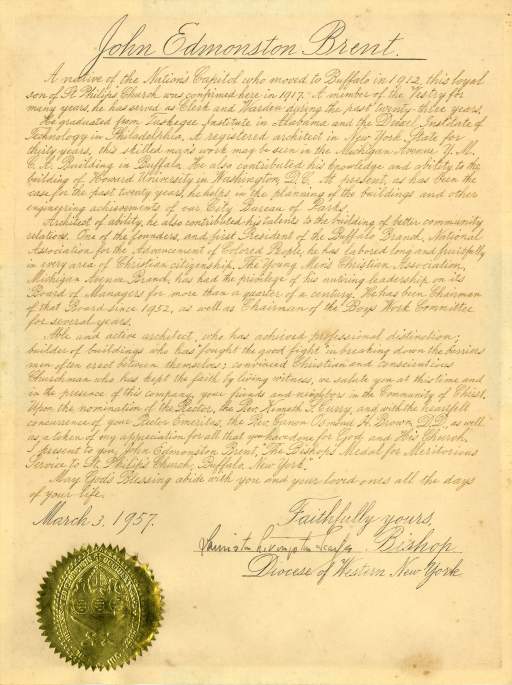 John Edmonston Brent.
A native of the Nation's Capitol who moved to Buffalo in 1912, this loyal
son of St. Philip's Church was confirmed here in 1917. A member of the Vestry for
many years, he has served as Clerk and Warden during the past twenty-three years.
He graduated from Tuskegee Institute in Alabama and the Drexel Institute of
Technology in Philadelphia. A registered architect in New York State for
thirty years, this skilled man's work may be seen in the Michigan Avenue Y. M.
C. A. Building in Buffalo. He also contributed his knowledge and ability to the
building of Howard University in Washington, D.C. At present, as has been the
case for the past twenty years, he helps in the planning of the buildings and other
engineering achievements of our City Bureau of Parks.
Architect of ability, he also contributed his talents to the building of better community
relations. One of the founders, and first President of the Buffalo Branch, National
Association for the Advancement of Colored People, he has labored long and fruitfully
in every area of Christian citizenship. The Young Men's Christian Association,
Michigan Avenue Branch, has had the privilege of his untiring leadership on its
Board of Managers for more than a quarter of a century. He has been Chairman
of that Board since 1952, as well as Chairman of the Boys Work Committee
for several years.
Able and active architect, who has achieved professional distinction;
builder of buildings who has fought the good fight in breaking down the barriers
men often erect between themselves; convinced Christian and conscientious
Churchman who has kept the faith by living witness, we salute you at this time and
in the presence of this company, your friends and neighbors in the Community of Christ.
Upon the nomination of the Rector, the Rev. Kenneth Curry, and with the heartfelt
concurrence of your Rector Emeritus, the Rev. Canon Osmond H. Brown, D.D., as well
as, a token of my appreciation for all that you have done for God and His Church,
I present to you, John Edmonston Brent, "The Bishop's Medal for Meritorious
Service to St. Philip's Church, Buffalo, New York."
May God's Blessing abide with you and your loved ones all the days
of your life.
March 3, 1957.
Faithfully yours,
Bishop
Diocese of Western New York